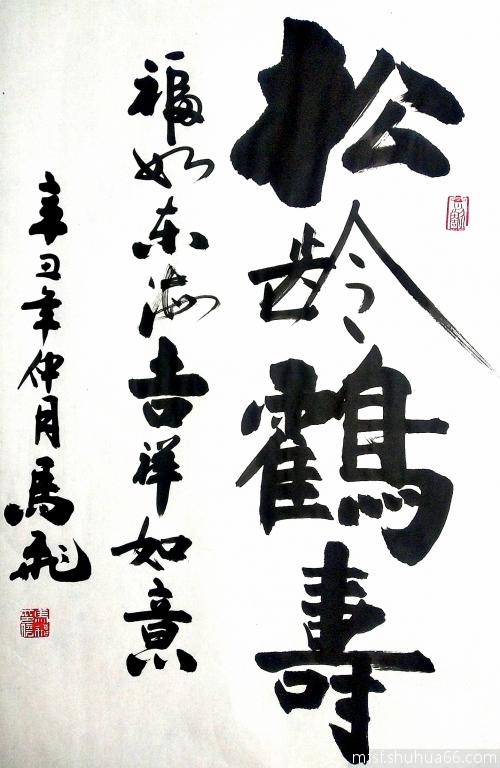 松龄鶴壽
福如东海吉祥如意
辛丑年仲月馬飛
mfsf.shuhua66.com